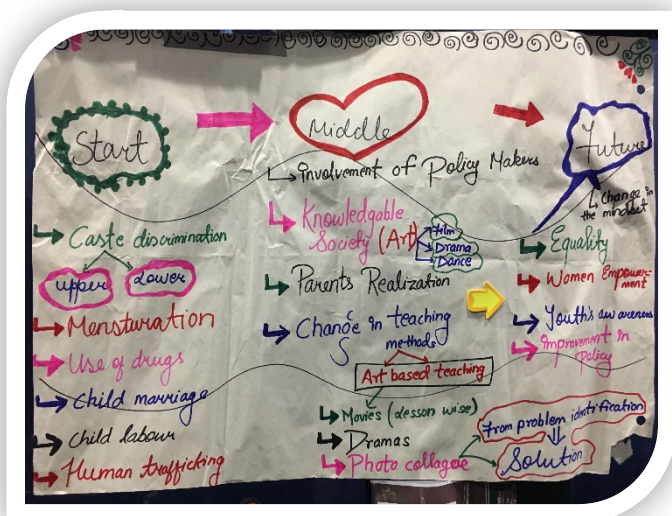 Start
Middle
Future
Change in
the mindset
Caste discrimination
upper
Lower
Mensturation
Use of drugs
Child marriage
Child labour
Human trafficking
involvement of Policy Makers
Knowledgable
Society (Art)
Film
Drama
Dance
Parents Realization
Change in teaching
methods
Art based teaching
Movies (Lesson wise)
Dramas
Photo collagoe
From problem identification
Solution
Equality
Women Empower-
ment
Youth's aw areness
improvement in
Policy